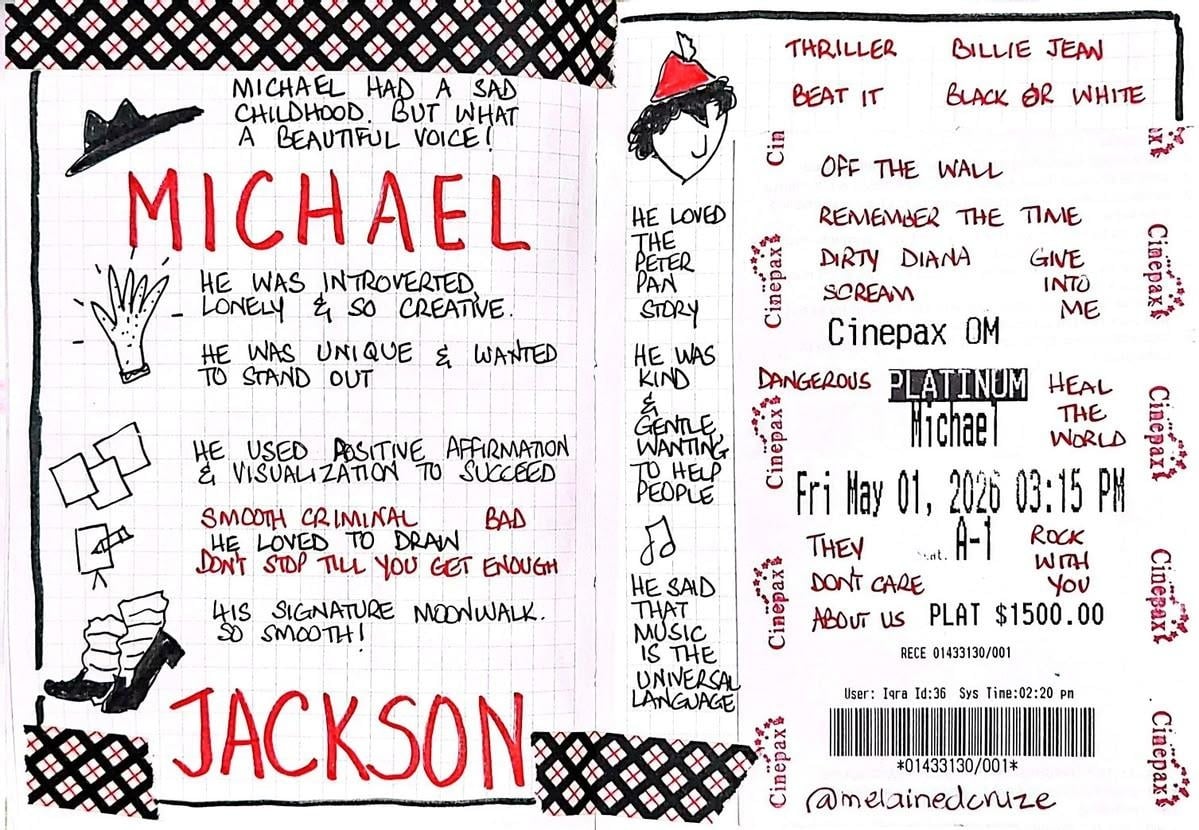 MICHAEL HAD A SAD
CHILDHOOD. BUT WHAT
A BEAUTIFUL VOICE!
MICHAEL
HE WAS INTROVERTED,
LONELY & SO CREATIVE.
HE WAS UNIQUE & WANTED
TO STAND OUT
HE USED POSITIVE AFFIRMATION
& VISUALIZATION TO SUCCEED
SMOOTH CRIMINAL BAD
HE LOVED TO DRAW
DON'T STOP TILL YOU GET ENOUGH
HIS SIGNATURE MOONWALK.
SO SMOOTH!
JACKSON
HE LOVED
THE
PETER
PAN
STORY
HE WAS
KIND
&
GENTLE
WANTING
TO HELP
PEOPLE
HE SAID
THAT
MUSIC
IS THE
UNIVERSAL
LANGUAGE
THRILLER BILLIE JEAN
BEAT IT BLACK OR WHITE
OFF THE WALL
REMEMBER THE TIME
DIRTY DIANA
SCREAM
GIVE
INTO
ME
Cinepax OM
DANGEROUS
PLATINUM
Michael
HEAL
THE
WORLD
Fri May 01, 2026 03:15 PM
A-1
THEY
DONT CARE
ABOUT US
ROCK
WITH
YOU
PLAT $1500.00
RECE 01433130/001
User: Iqra Id:36 Sys Time:02:20 pm
*01433130/001*
@melainedcruze
Cin
Cinepax
Cinepax
Cinepax
Cinepax
Cinepax
Cinepax
Cinepax
Cinepax